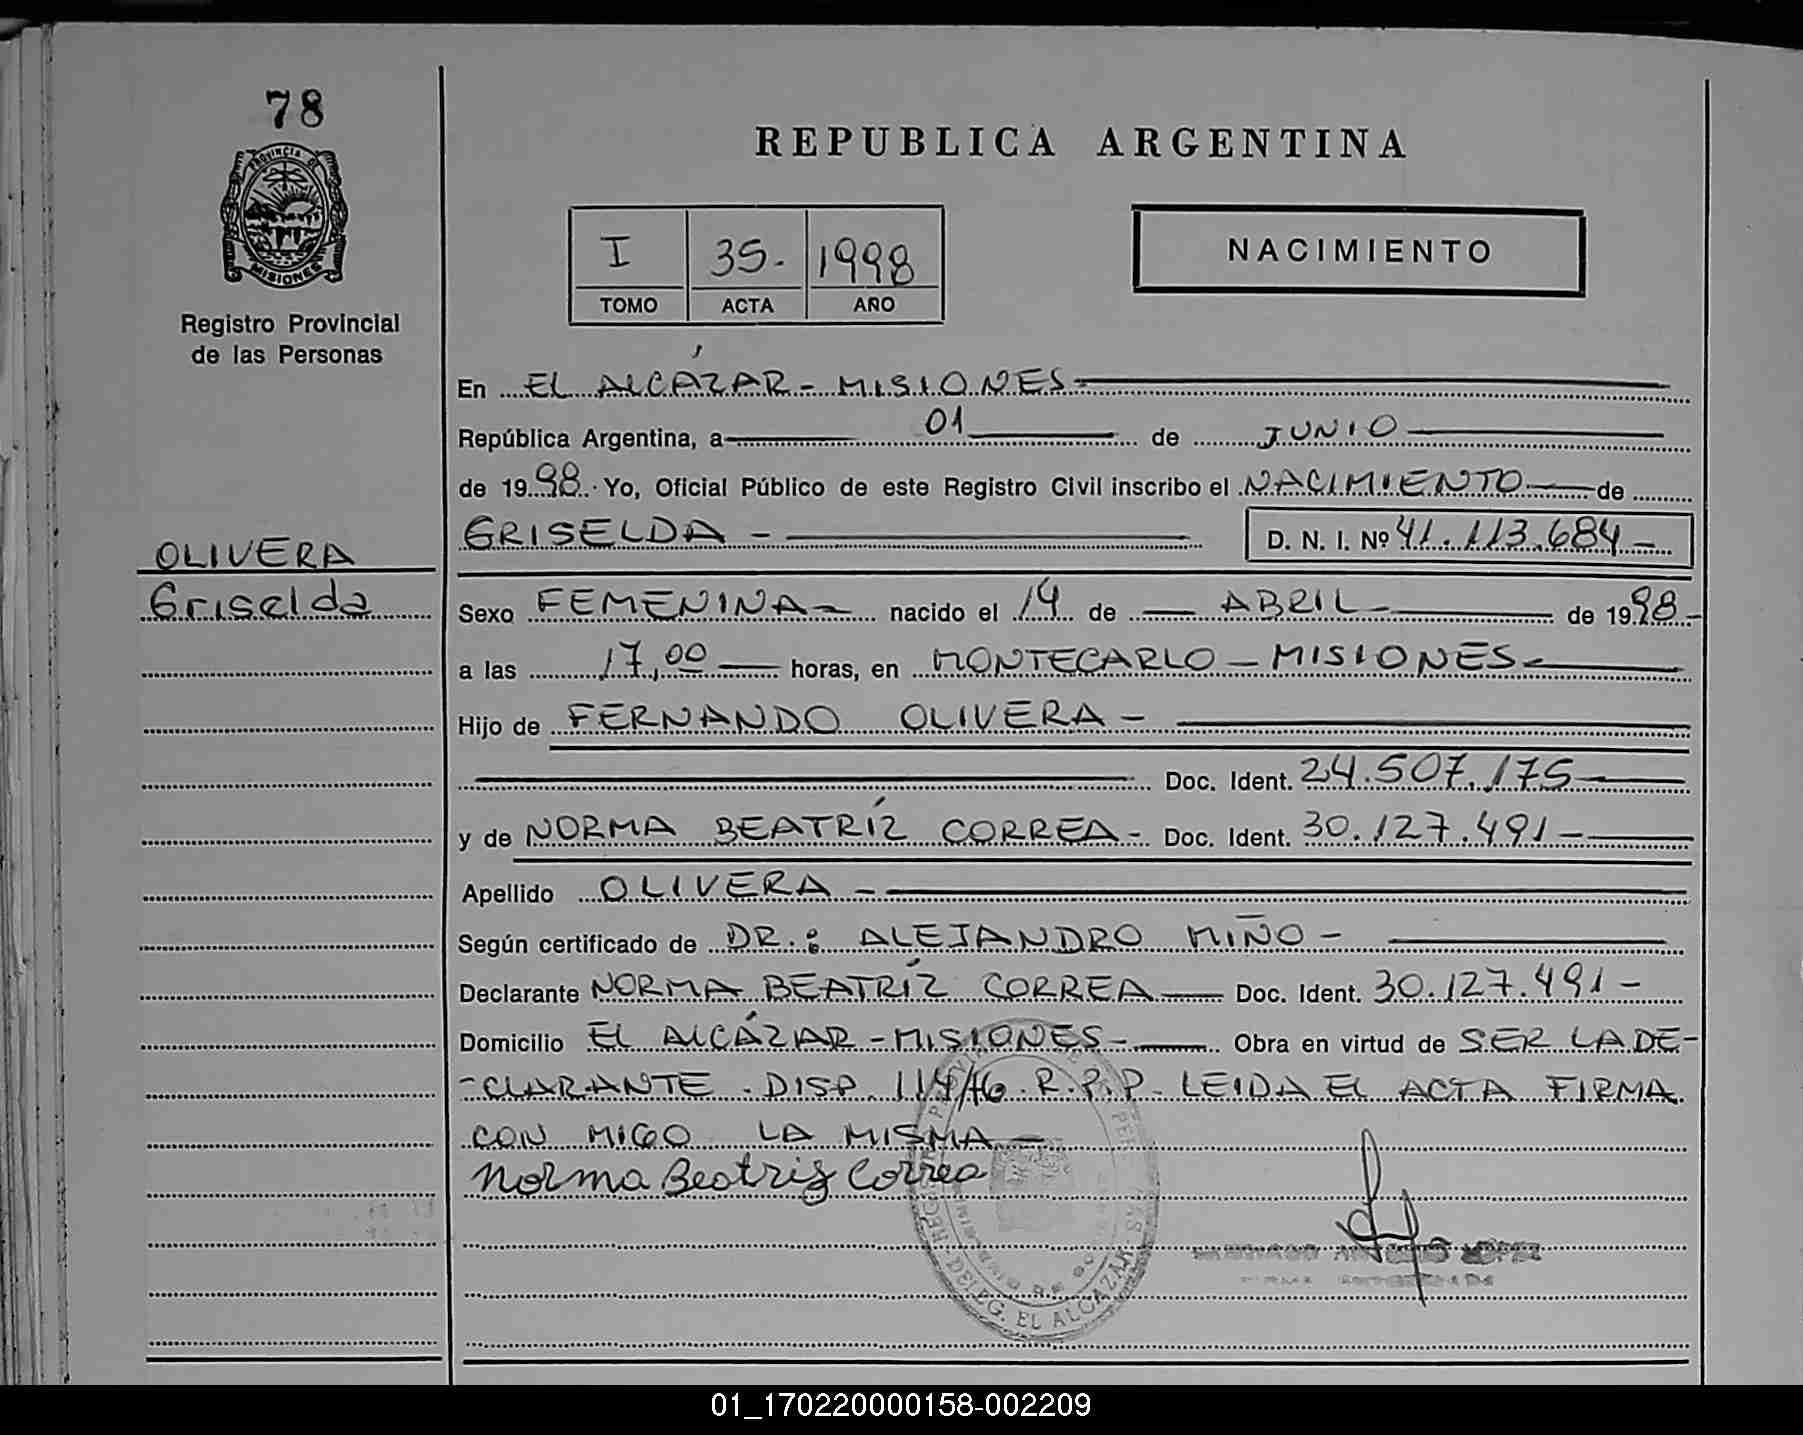 78
PROVINCIA DE
MISIONES
Registro Provincial
de las Personas
OLIVERA
Griselda
REPUBLICA ARGENTINA
I 35. 1998
TOMO ACTA AÑO
NACIMIENTO
En EL ALCÁZAR - MISIONES -
República Argentina, a 01 de JUNIO
de 1998. Yo, Oficial Público de este Registro Civil inscribo el NACIMIENTO de
GRISELDA - D. N. I. Nº 41.113.684 -
Sexo FEMENINA - nacido el 14 de ABRIL - de 1998 -
a las 17,00 horas, en MONTECARLO - MISIONES -
Hijo de FERNANDO OLIVERA -
Doc. Ident. 24.507.175
y de NORMA BEATRÍZ CORREA - Doc. Ident. 30.127.491 -
Apellido OLIVERA -
Según certificado de DR.: ALEJANDRO MIÑO -
Declarante NORMA BEATRÍZ CORREA Doc. Ident. 30.127.491 -
Domicilio EL ALCÁZAR - MISIONES - Obra en virtud de SER LA DE-
-CLARANTE . DISP. 114/76 . R.P.P. LEIDA EL ACTA FIRMA
CON MIGO LA MISMA -
Norma Beatriz Correa
DELEG. EL ALCAZAR
LOPEZ
01_170220000158-002209